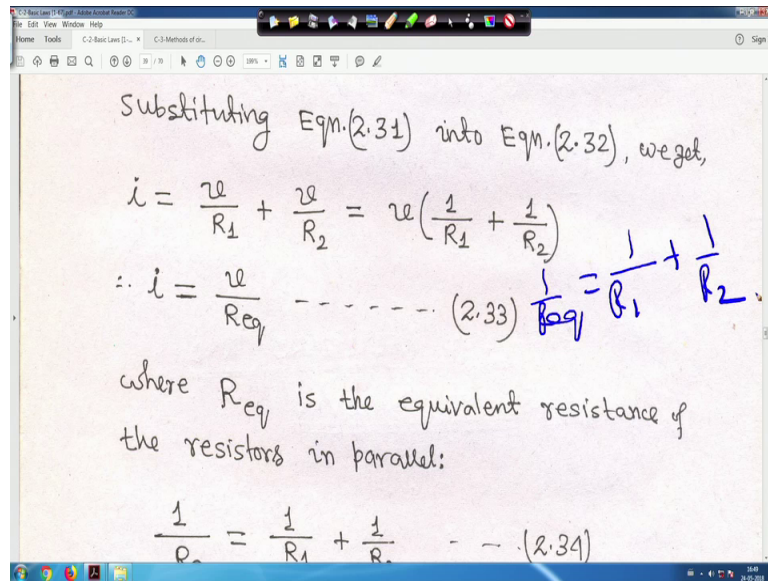 C-2-Basic Laws [1-67].pdf - Adobe Acrobat Reader DC
File Edit View Window Help
Home Tools C-2-Basic Laws [1-... × C-3-Methods of cir... Sign
39 / 70
Substituting Eqn.(2.31) into Eqn.(2.32), we get,
i = v/R1 + v/R2 = v(1/R1 + 1/R2)
∴ i = v/Req ------- (2.33) 1/Req = 1/R1 + 1/R2
where Req is the equivalent resistance of
the resistors in parallel:
1/R = 1/R1 + 1/R -- (2.34)
16:49
24-05-2018